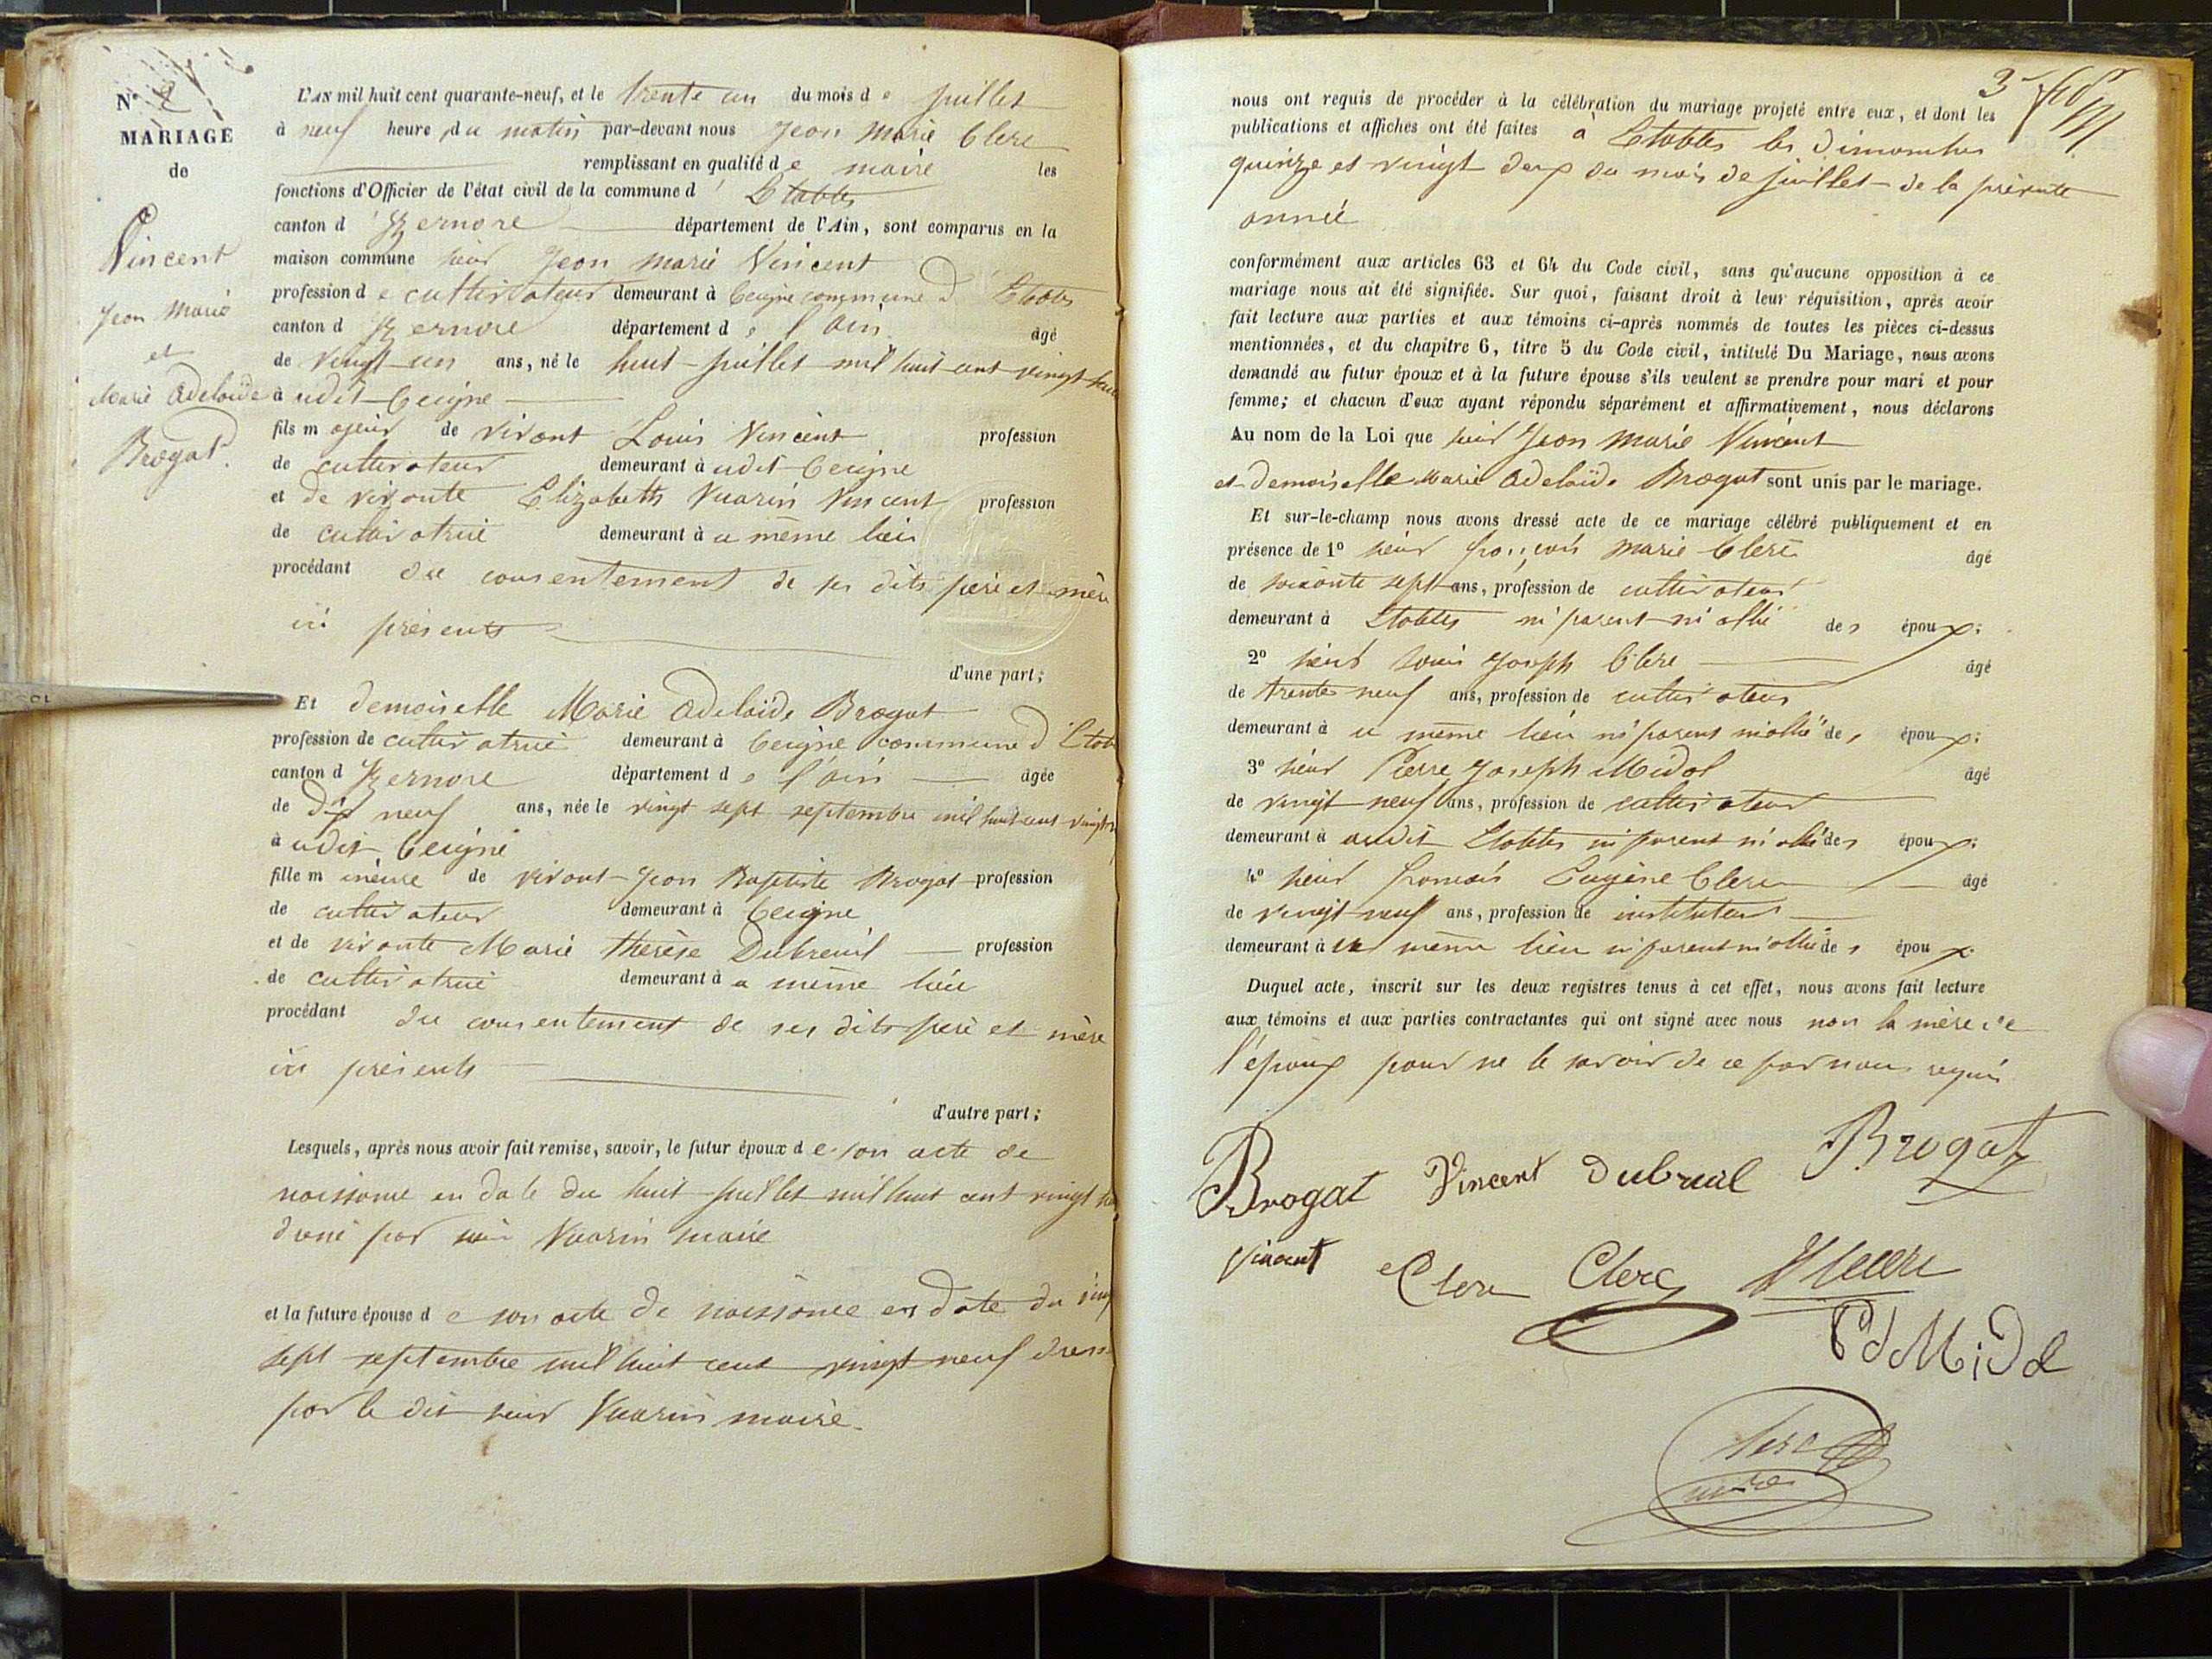 N°
MARIAGE
de
Vincent
Jean Marie
et
Marie Adelaïde
Brogat.
L'AN mil huit cent quarante-neuf, et le trente un du mois de juillet
à neuf heure du matin par-devant nous Jean Marie Clerc
remplissant en qualité de maire les
fonctions d'Officier de l'état civil de la commune d'Etables
canton d'Izernore département de l'Ain, sont comparus en la
maison commune sieur Jean Marie Vincent
profession de cultivateur demeurant à Ceigne commune d'Etables
canton d'Izernore département de l'Ain âgé
de vingt un ans, né le huit juillet mil huit cent vingt huit
à udit Ceigne
fils majeur de vivant Louis Vincent profession
de cultivateur demeurant à udit Ceigne
et de vivante Elizabeth Vuarin Vincent profession
de cultivatrice demeurant à u même lieu
procédant du consentement de ses dits père et mère
ici présents
d'une part;
Et demoiselle Marie Adelaïde Brogat
profession de cultivatrice demeurant à Ceigne commune d'Etab
canton d'Izernore département de l'Ain âgée
de dix neuf ans, née le vingt sept septembre mil huit cent vingt
à udit Ceigne
fille mineure de vivant Jean Baptiste Brogat profession
de cultivateur demeurant à Ceigne
et de vivante Marie Thérèse Dubreuil profession
de cultivatrice demeurant à u même lieu
procédant du consentement de ses dits père et mère
ici présents
d'autre part;
Lesquels, après nous avoir fait remise, savoir, le futur époux de son acte de
naissance en date du huit juillet mil huit cent vingt
par Vuarin maire
et la future épouse de son acte de naissance en date du vingt
sept septembre mil huit cent vingt neuf dressé
par le dit sieur Vuarin maire.
3
nous ont requis de procéder à la célébration du mariage projeté entre eux, et dont les
publications et affiches ont été faites à Etables les dimanches
quinze et vingt deux du mois de juillet de la présente
année
conformément aux articles 63 et 64 du Code civil, sans qu'aucune opposition à ce
mariage nous ait été signifiée. Sur quoi, faisant droit à leur réquisition, après avoir
fait lecture aux parties et aux témoins ci-après nommés de toutes les pièces ci-dessus
mentionnées, et du chapitre 6, titre 5 du Code civil, intitulé Du Mariage, nous avons
demandé au futur époux et à la future épouse s'ils veulent se prendre pour mari et pour
femme; et chacun d'eux ayant répondu séparément et affirmativement, nous déclarons
Au nom de la Loi que sieur Jean Marie Vincent
et demoiselle Marie Adelaïde Brogat sont unis par le mariage.
Et sur-le-champ nous avons dressé acte de ce mariage célébré publiquement et en
présence de 1° sieur François Marie Clerc âgé
de soixante sept ans, profession de cultivateur
demeurant à Etables ni parent ni allié des époux;
2° sieur Louis Joseph Clerc âgé
de trente neuf ans, profession de cultivateur
demeurant à u même lieu ni parent ni allié des époux;
3° sieur Pierre Joseph Midol âgé
de vingt neuf ans, profession de cultivateur
demeurant à audit Etables ni parent ni allié des époux;
4° sieur François Eugène Clerc âgé
de vingt neuf ans, profession de instituteur
demeurant à u même lieu ni parent ni allié des époux
Duquel acte, inscrit sur les deux registres tenus à cet effet, nous avons fait lecture
aux témoins et aux parties contractantes qui ont signé avec nous non la mère de
l'époux pour ne le savoir de ce par nous requis
Brogat Vincent Dubreuil Brogat
Vincent Clerc Clerc
Midol
Clerc
maire